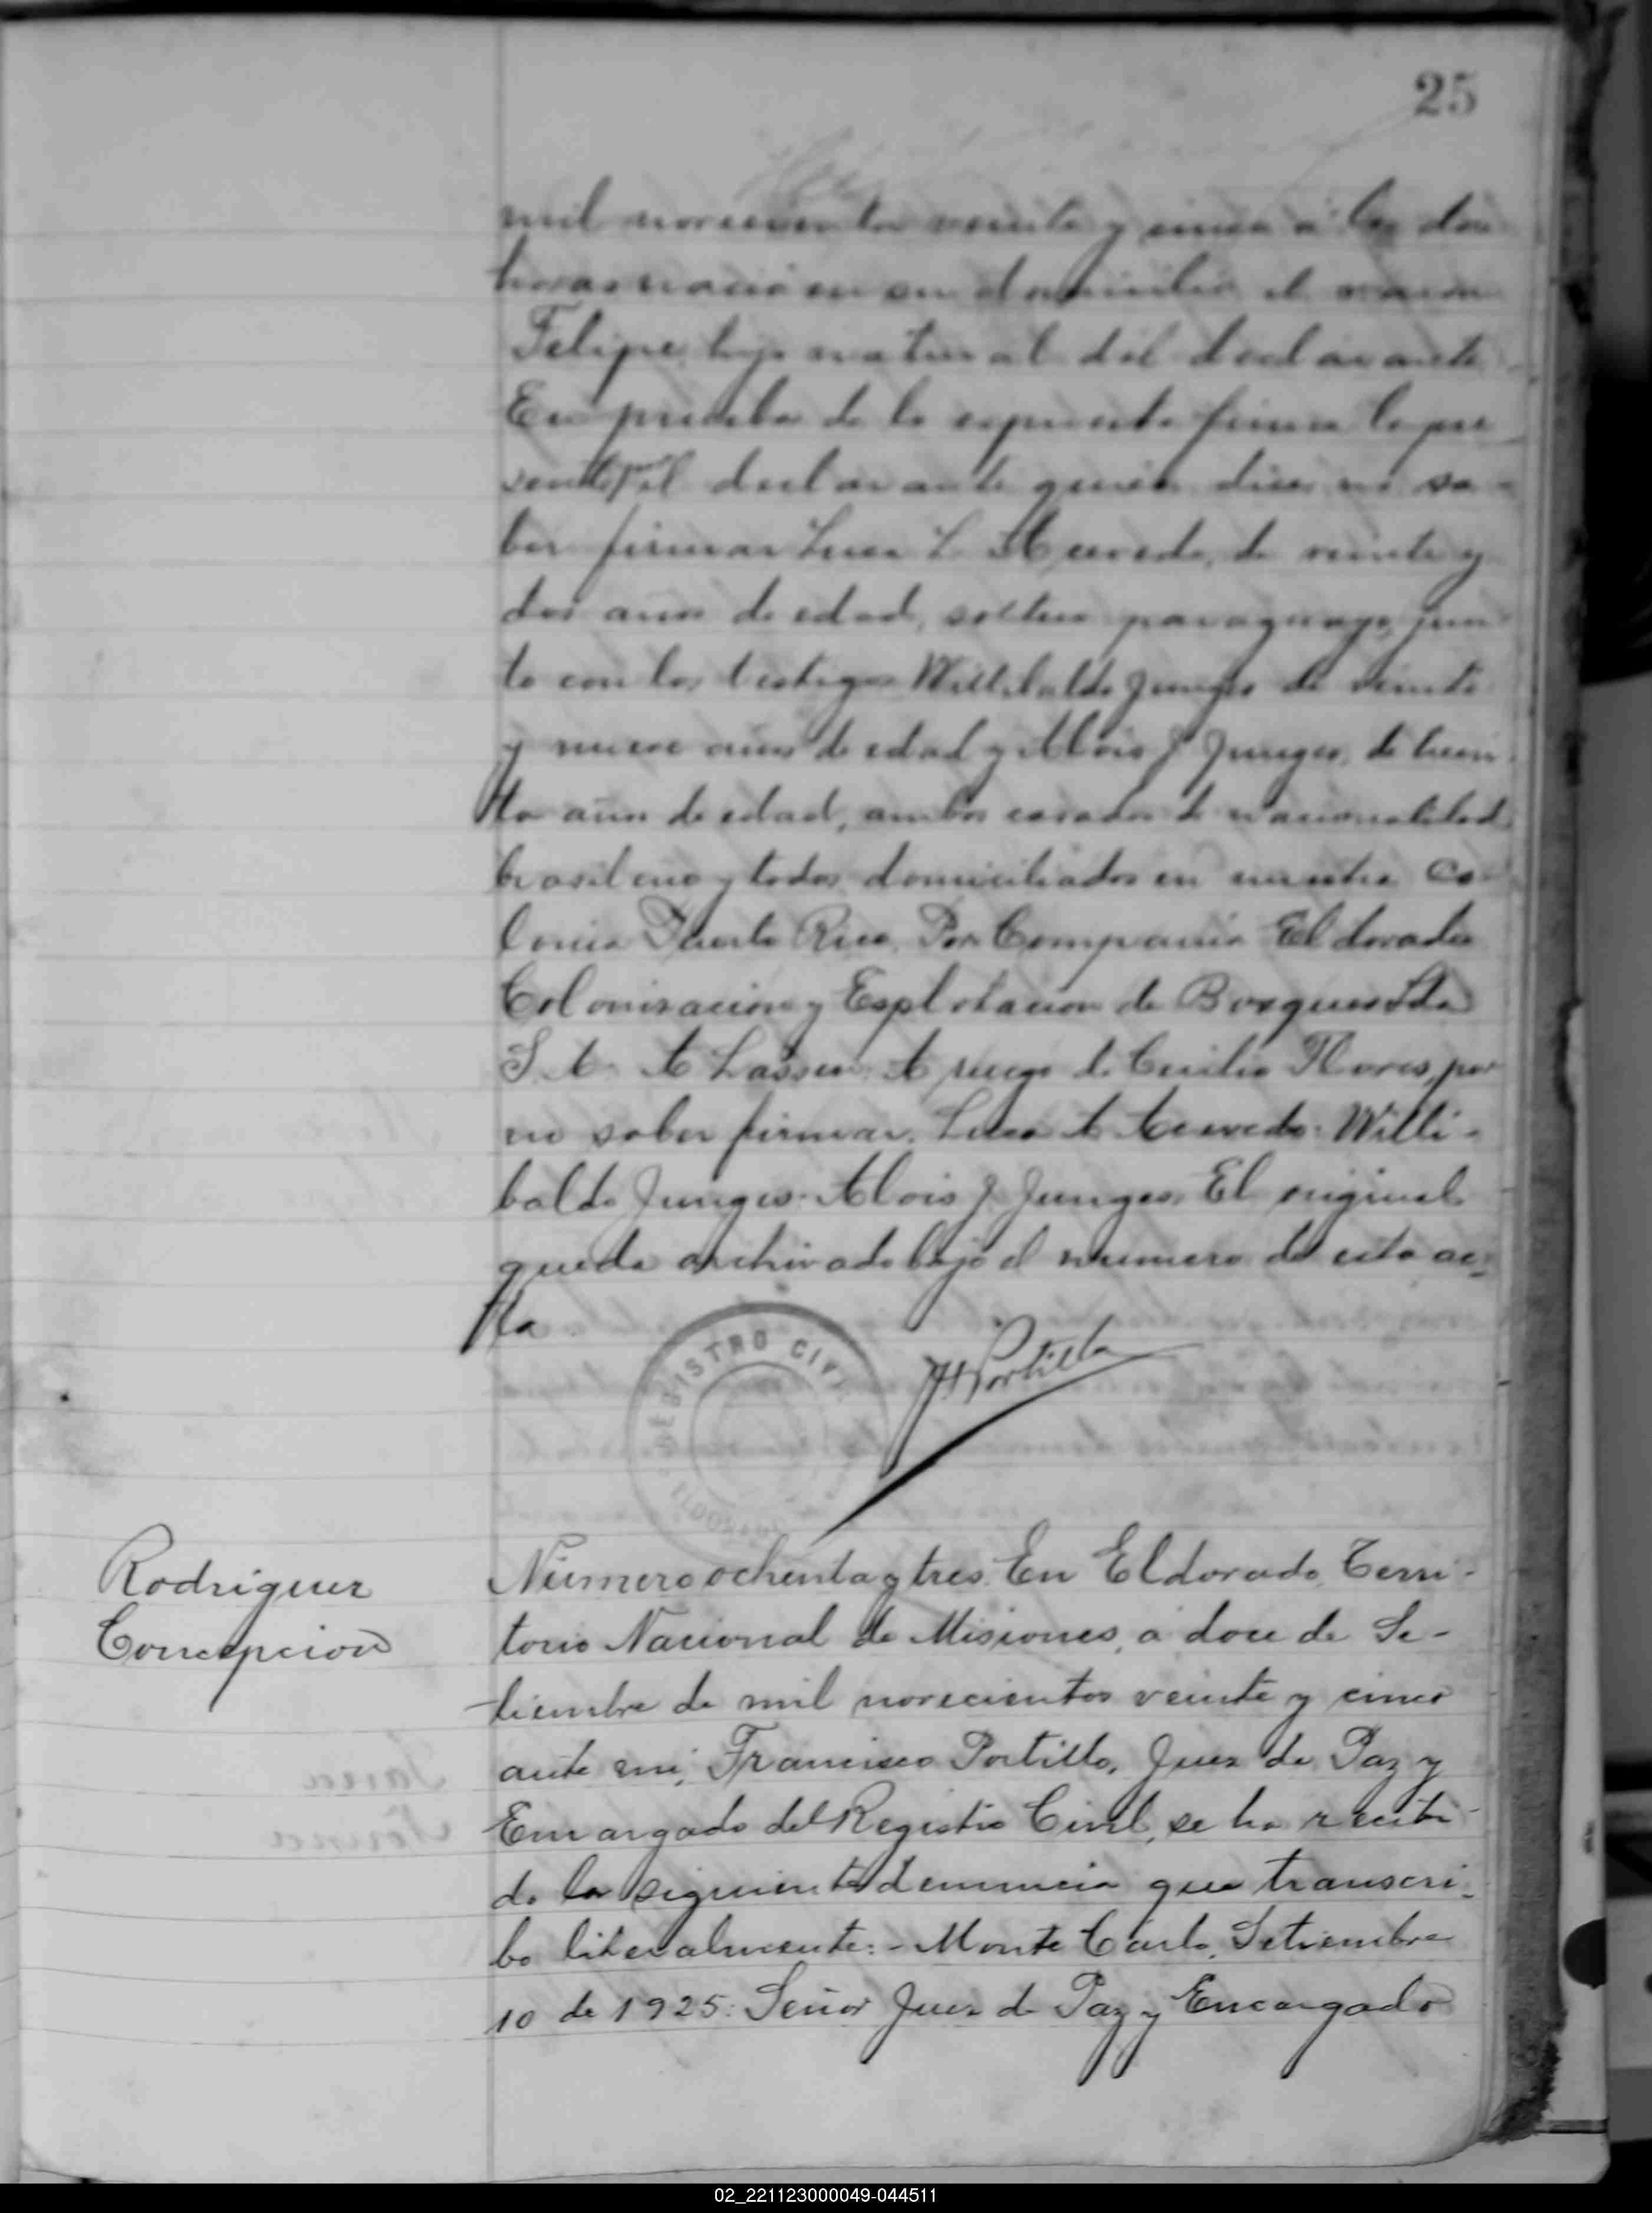 25
mil novecientos veinte y cinco a las dos
horas nació en su domicilio el varon
Felipe hijo natural del declarante
En prueba de lo expuesto firma la pre
sente por el declarante quien dice no sa-
ber firmar Luca L Acevedo, de veinte y
dos años de edad, soltero paraguayo, jun
to con los testigos Willibaldo Junges de veinte
y nueve años de edad y Alois J. Junges, de trein
ta años de edad, ambos casados de nacionalidad
brasileña y todos domiciliados en nuestra Co-
lonia Puerto Rico. Por Compañia Eldorado
Colonizacion y Esplotacion de Bosques Lda
S. A. A Lassen. A ruego de Flores, por
no saber firmar. A Acevedo. Willi-
baldo Junges. Alois J. Junges. El original
queda archivado bajo el numero de esta ac-
ta
REGISTRO CIVIL
ELDORADO
Portillo
Rodriguez
Concepcion
Número ochenta y tres. En Eldorado, Terri-
torio Nacional de Misiones, a doce de Se-
tiembre de mil novecientos veinte y cinco
ante mi, Francisco Portillo, Juez de Paz y
Encargado del Registro Civil, se ha recibi-
do la siguiente denuncia que transcri-
bo literalmente:- Monte Carlo, Setiembre
10 de 1925: Señor Juez de Paz y Encargado
02_221123000049-044511